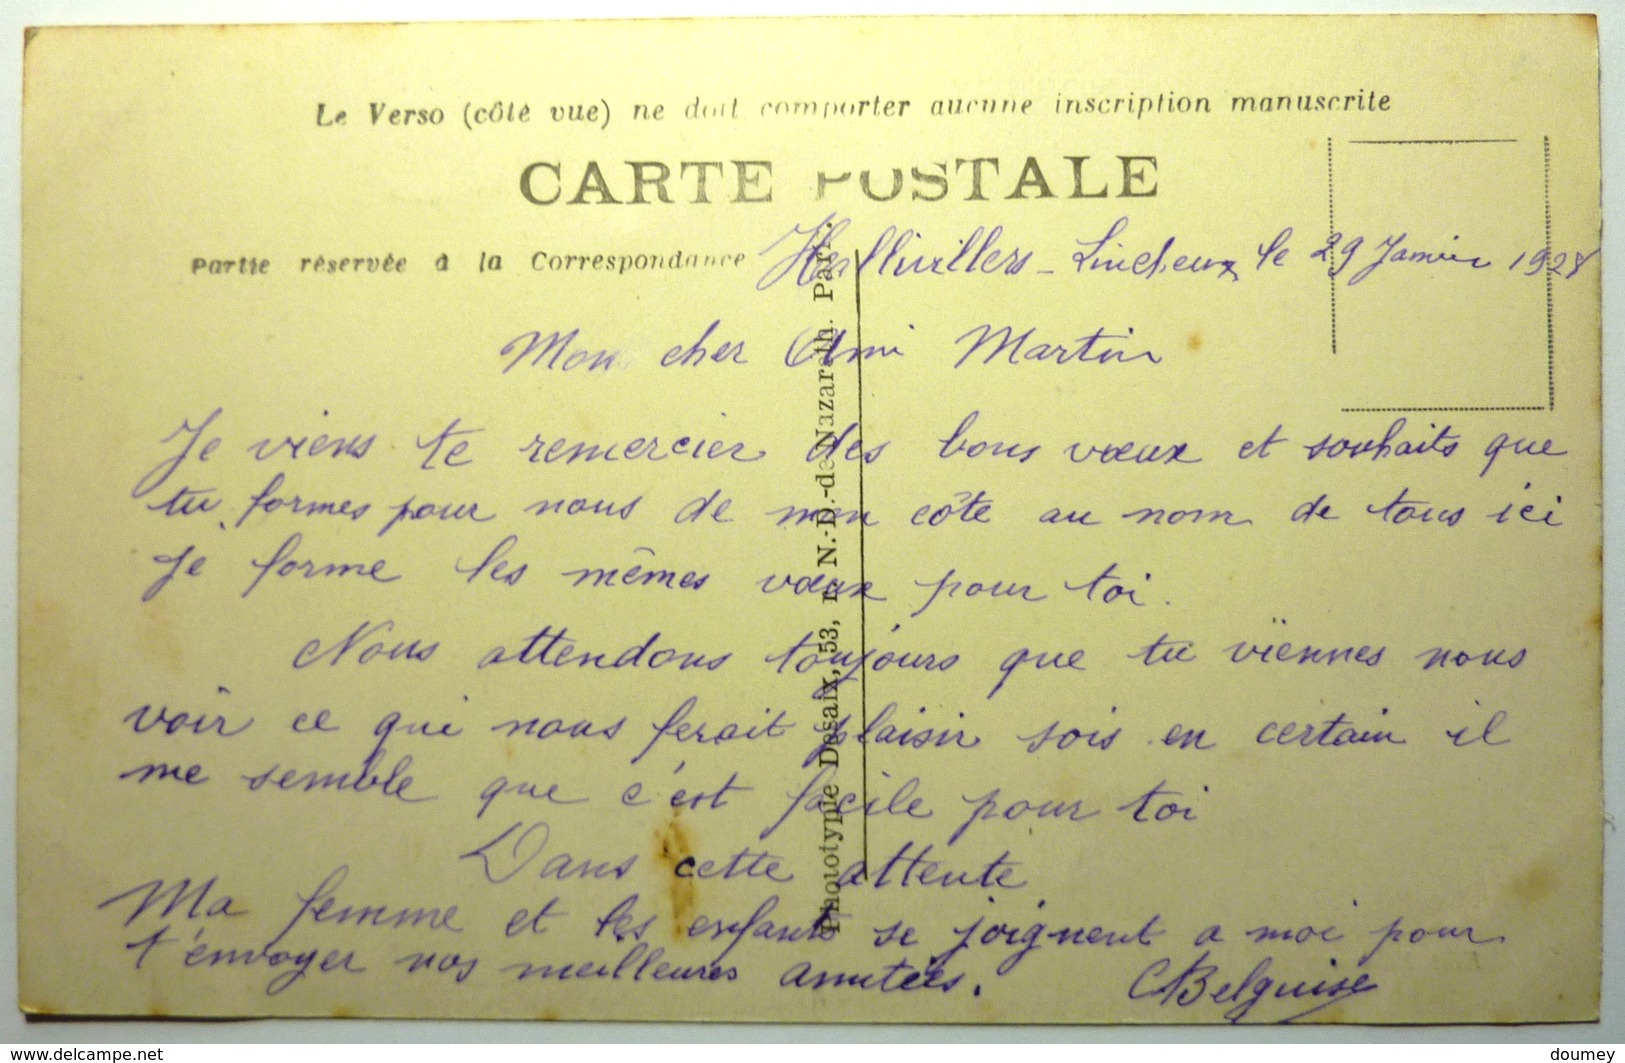 Le Verso (côté vue) ne doit comporter aucune inscription manuscrite
CARTE POSTALE
Partie réservée à la Correspondance
Hallivillers - Lincheux le 29 Janvier 1928
Mon cher Ami Martin
Je viens te remercier des bons vœux et souhaits que
tu formes pour nous de mon côte au nom de tous ici
je forme les mêmes vœux pour toi.
Nous attendons toujours que tu viennes nous
voir ce qui nous ferait plaisir sois en certain il
me semble que c'est facile pour toi
Dans cette attente
Ma femme et les enfants se joignent a moi pour
t'envoyer nos meilleures amitées.
CBelguise
Phototypie Desaix, 53, r. N.-D.-de-Nazareth. Paris
www.delcampe.net
doumey